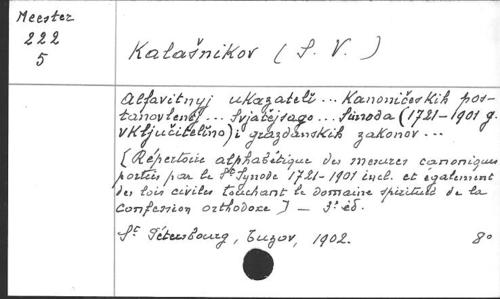 Meester
222
5
Kalašnikov (S. V.)
Alfavitnyj ukazatelĭ ... Kanoničeskih pos-
tanovlenĭj ... Svjatějšago ... Sinoda (1721-1901 g.
vključitelĭno) i graždanskih zakonov ...
[Répertoire alphabétique des mesures canoniques
portées par le St Synode 1721-1901 incl. et également
des lois civiles touchant le domaine spirituel de la
Confession orthodoxe] — 3e éd.
St Pétersbourg, Tuzov, 1902. 8°